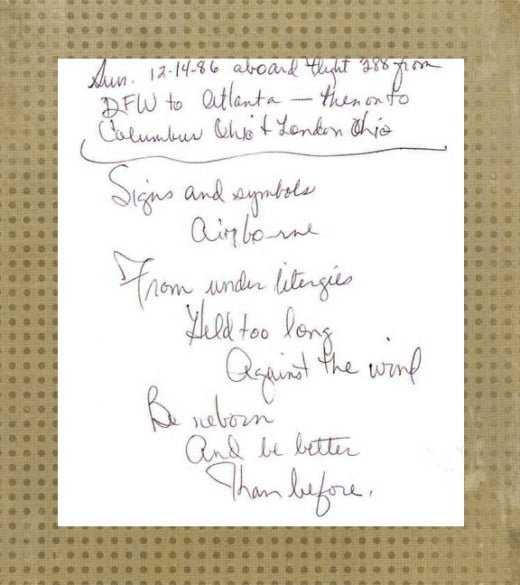 Sun. 12-14-86 aboard flight 288 from
DFW to Atlanta — then onto
Columbus Ohio & London Ohio
Signs and symbols
Airborne
From under liturgies
Held too long
Against the wind
Be reborn
And be better
Than before.